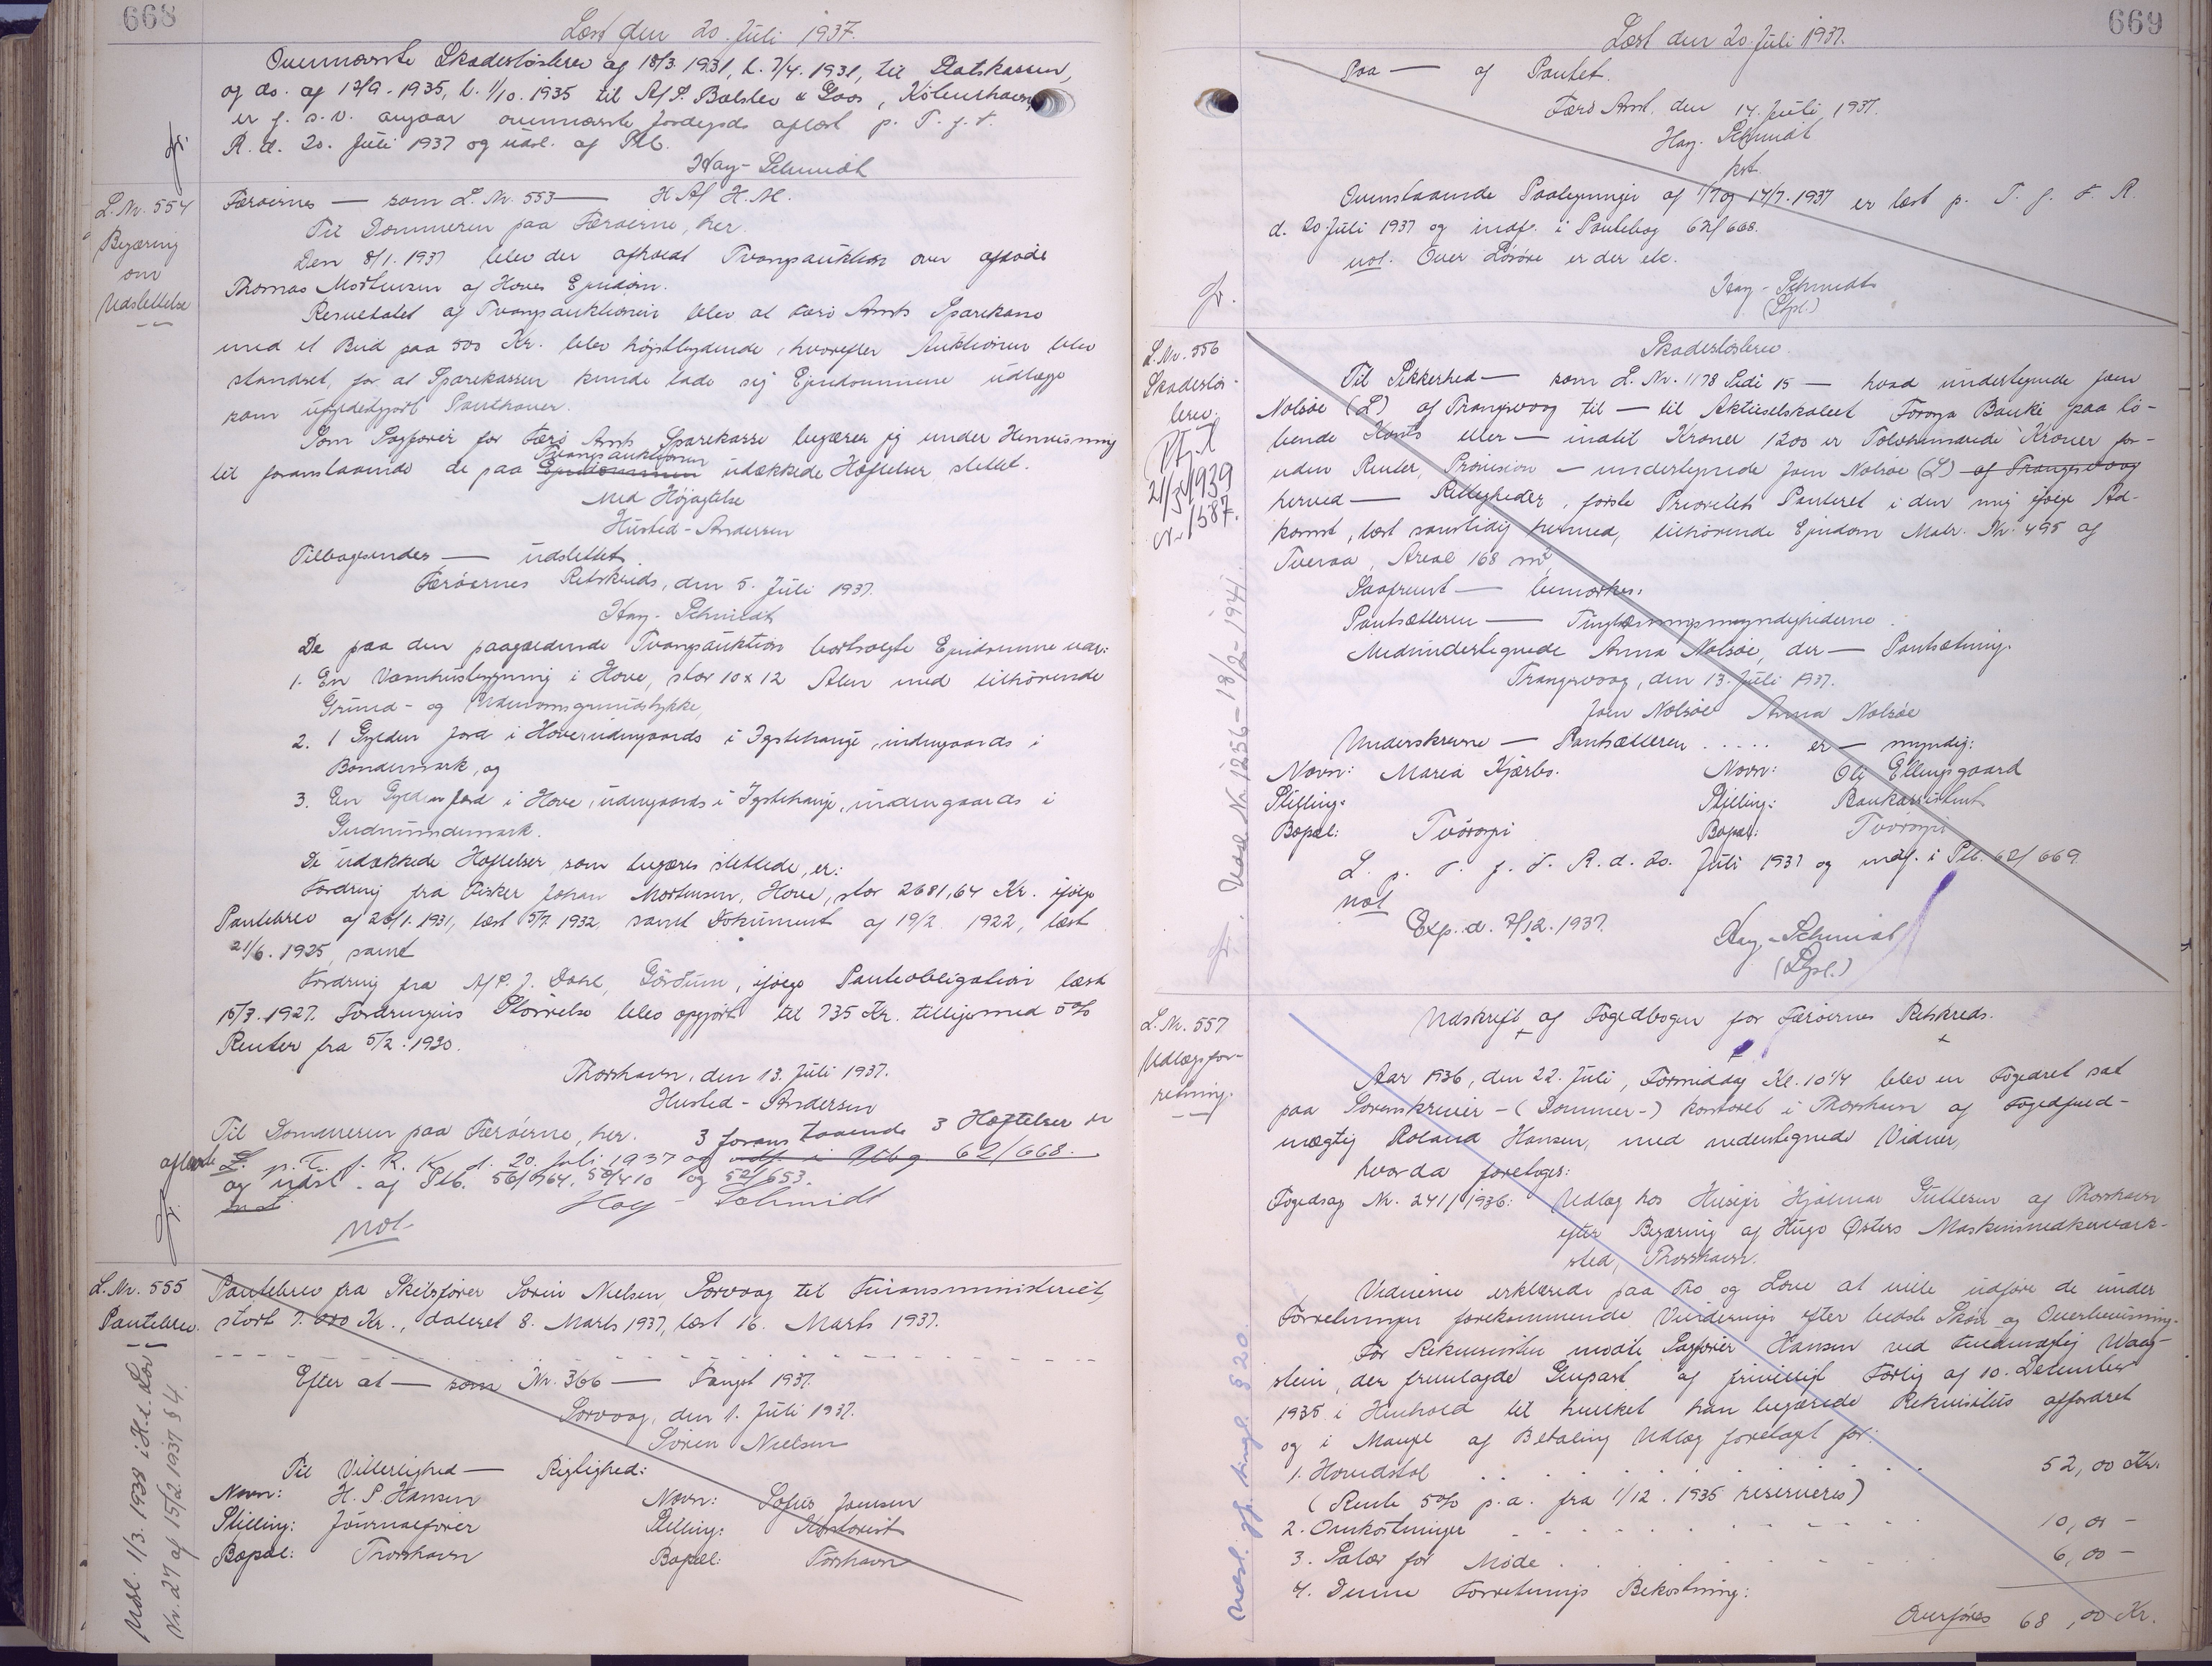 668
Læst den 20. Juli 1937.
Ovennævnte Skadesløsbrev af 18/3. 1931, l. 7/4. 1931, til Statskassen,
og do. af 12/9. 1935, l. 1/10. 1935 til A/S. Balslev & Goos, København,
er f. s. v. angaar ovennævnte Jordegods aflæst p. T. f. F.
R. d. 20. Juli 1937 og udsl. af Ptb.
Hay-Schmidt
L. Nr. 554
Begæring
om
Udslettelse
Færøernes — som L. Nr. 553 — H Af H. M.
Til Dommeren paa Færøerne, her.
Den 8/1. 1937 blev der afholdt Tvangsauktion over afdøde
Thomas Mortensen af Hoves Ejendom.
Resultatet af Tvangsauktionen blev at Færø Amts Sparekasse
med et Bud paa 500 Kr. blev højstbydende, hvorefter Auktionen blev
standset, for at Sparekassen kunde lade sig Ejendommene udlægge
som ufyldestgjort Panthaver.
Som Sagfører for Færø Amts Sparekasse begærer jeg under Henvisning
til foranstaaende de paa Ejendommen Tvangsauktionen udækkede Hæftelser slettet.
Med Højagtelse
Husted-Andersen
Tilbagesendes — udslettet
Færøernes Retskreds, den 5. Juli 1937.
Hay-Schmidt
De paa den paagældende Tvangsauktion bortsolgte Ejendomme var:
1. En Vaanhusbygning i Hove, stor 10 x 12 Alen med tilhørende
Grund- og Udenomsgrundstykke,
2. 1 Gylden Jord i Hove, udengaards i Ystehauge, indengaards i
Bondemark, og
3. En Gylden Jord i Hove, udengaards i Ystehauge, indengaards i
Gudrunsdemark.
De udækkede Hæftelser, som begæres slettede, er:
Fordring fra Fisker Johan Mortensen, Hove, stor 2681,64 Kr. ifølge
Pantebrev af 26/1. 1931, læst 5/7. 1932, samt Dokument af 19/2. 1922, læst
21/6. 1925, samt
Fordring fra A/S. J. Dahl, Gørdum, ifølge Panteobligation læst
15/3. 1927. Fordringens Størrelse blev opgjort til 735 Kr. tilligemed 5%
Renter fra 5/2. 1930.
Thorshavn, den 13. Juli 1937.
Husted-Andersen
Til Dommeren paa Færøerne, her. 3 foranstaaende 3 Hæftelser er
aflæste L. p. T. f. R. K. d. 20. Juli 1937 og indf. i Ptbg. 62/668.
og udsl. af Ptb. 56/464, 50/410 og 52/653.
not Hay-Schmidt
not
L. Nr. 555
Pantebrev.
Udsl. 1/3. 1938 i H. t. Lov
Nr. 27 af 15/2 1937 § 4.
Pantebrev fra Skibsfører Søren Nielsen, Sørvaag til Finansministeriet,
stort 7.000 Kr., dateret 8. Marts 1937, læst 16. Marts 1937.
Efter at — som Nr. 366 — Fangst 1937.
Sørvaag, den 1. Juli 1937.
Søren Nielsen
Til Vitterlighed — Rigtighed:
Navn: H. P. Hansen Navn: Sofus Joensen
Stilling: Journalfører Stilling: Kontorist
Bopæl: Thorshavn Bopæl: Tórshavn
669
Læst den 20. Juli 1937.
Paa — af Pantet.
Færø Amt, den 14. Juli 1937.
Hay. Schmidt
kst.
Ovenstaaende Paategninger af 1/7 og 14/7. 1937 er læst p. T. f. F. R.
d. 20 Juli 1937 og indf. i Pantebog 62/668.
not. Over Løsøre er der etc.
Hay-Schmidt
(Stpl.)
L. Nr. 556
Skadesløs-
brev.
21/3 1939
Nr. 1587.
Udsl. Nr. 1256 – 18/2 – 1941.
Skadesløsbrev.
Til Sikkerhed — som L. Nr. 1178 Side 15 — hvad undertegnede Joen
Nolsøe (L) af Trangsvaag til — til Aktieselskabet Føroya Banki paa lø-
bende Konto eller — indtil Kroner 1200 er Tolvhundrede Kroner for-
uden Renter, Provision — undertegnede Joen Nolsøe (L) af Trangsvaag
herved — Rettigheder, første Prioritets Panteret i den mig ifølge Ad-
komst, læst samtidig hermed, tilhørende Ejendom Matr. Nr. 495 af
Tveraa, Areal 168 m²,
Saafremt — bemærkes:
Pantsætteren — Tinglæsningsmyndighederne.
Medundertegnede Anna Nolsøe, der — Pantsætning.
Trangsvaag, den 13. Juli 1937.
Joen Nolsøe Anna Nolsøe
Underskrevne — Pantsætteren ..... er — myndig:
Navn: Maria Kjærbo. Navn: Oli Ellingsgaard
Stilling: Stilling: Bankassistent
Bopæl: Tvöroyri Bopæl: Tvöroyri
L. p. T. f. F. R. d. 20. Juli 1937 og indf. i Ptb. 62/669
not
Exp. d. 7/12. 1937.
Hay-Schmidt
(Stpl.)
L. Nr. 557
Udlægsfor-
retning.
Udskrift af Fogedbogen for Færøernes Retskreds.
Aar 1936, den 22. Juli, Formiddag Kl. 10 1/4 blev en Fogedret sat
paa Sorenskriver- (Dommer-) kontoret i Thorshavn af Fogedfuld-
mægtig Roland Hansen, med nedentegnede Vidner,
hvorda foretoges:
Fogedsag Nr. 241/1936: Udlæg hos Husejer Hjalmar Guttesen af Thorshavn
efter Begæring af Hugo Østers Maskinsnedkerværk-
sted, Thorshavn.
Vidnerne erklærede paa Tro og Love at ville udføre de under
Forretningen forekommende Vurderinger efter bedste Skøn og Overbevisning.
For Rekvirenten mødte Sagfører Hansen ved Fuldmægtig Waag-
stein, der fremlagde Genpart af frivilligt Forlig af 10. December
1935 i Henhold til hvilket han begærede Rekvisitus affordret
og i Mangel af Betaling Udlæg foretaget for:
1. Hovedstol . . . . . 52,00 Kr.
(Rente 5% p. a. fra 1/12. 1935 reserveres)
2. Omkostninger - - - - 10,00 -
3. Salær for Møde . . . . 6,00 -
4. Denne Forretnings Bekostning:
Overføres 68,00 Kr.